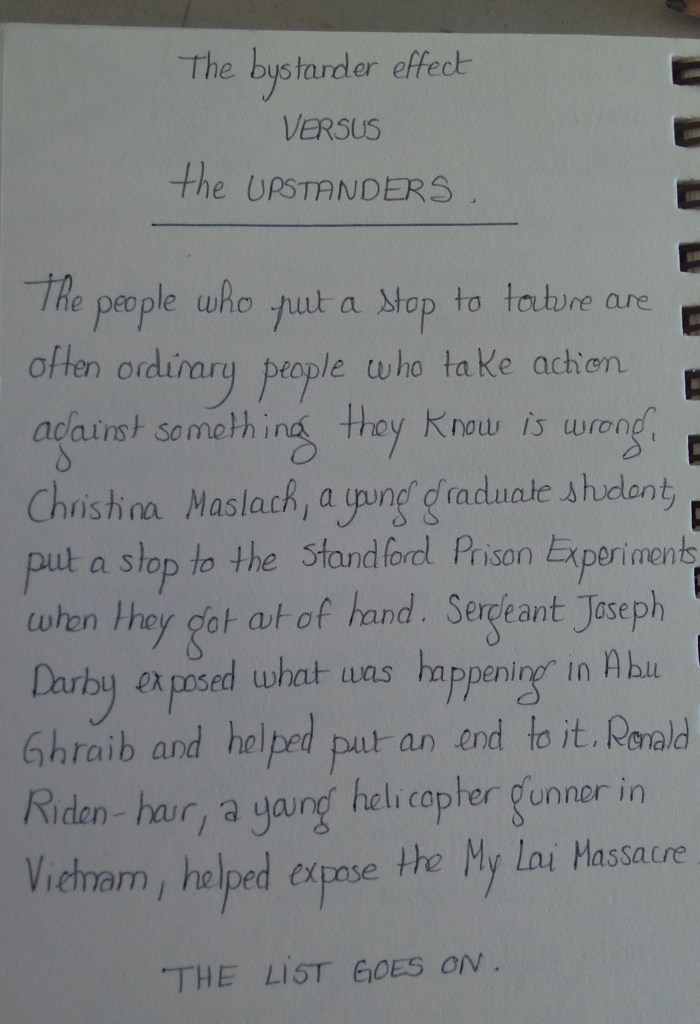 The bystander effect
VERSUS
the UPSTANDERS.
The people who put a stop to torture are
often ordinary people who take action
against something they know is wrong.
Christina Maslach, a young graduate student,
put a stop to the Standford Prison Experiments
when they got out of hand. Sergeant Joseph
Darby exposed what was happening in Abu
Ghraib and helped put an end to it. Ronald
Riden-hour, a young helicopter gunner in
Vietnam, helped expose the My Lai Massacre.
THE LIST GOES ON.